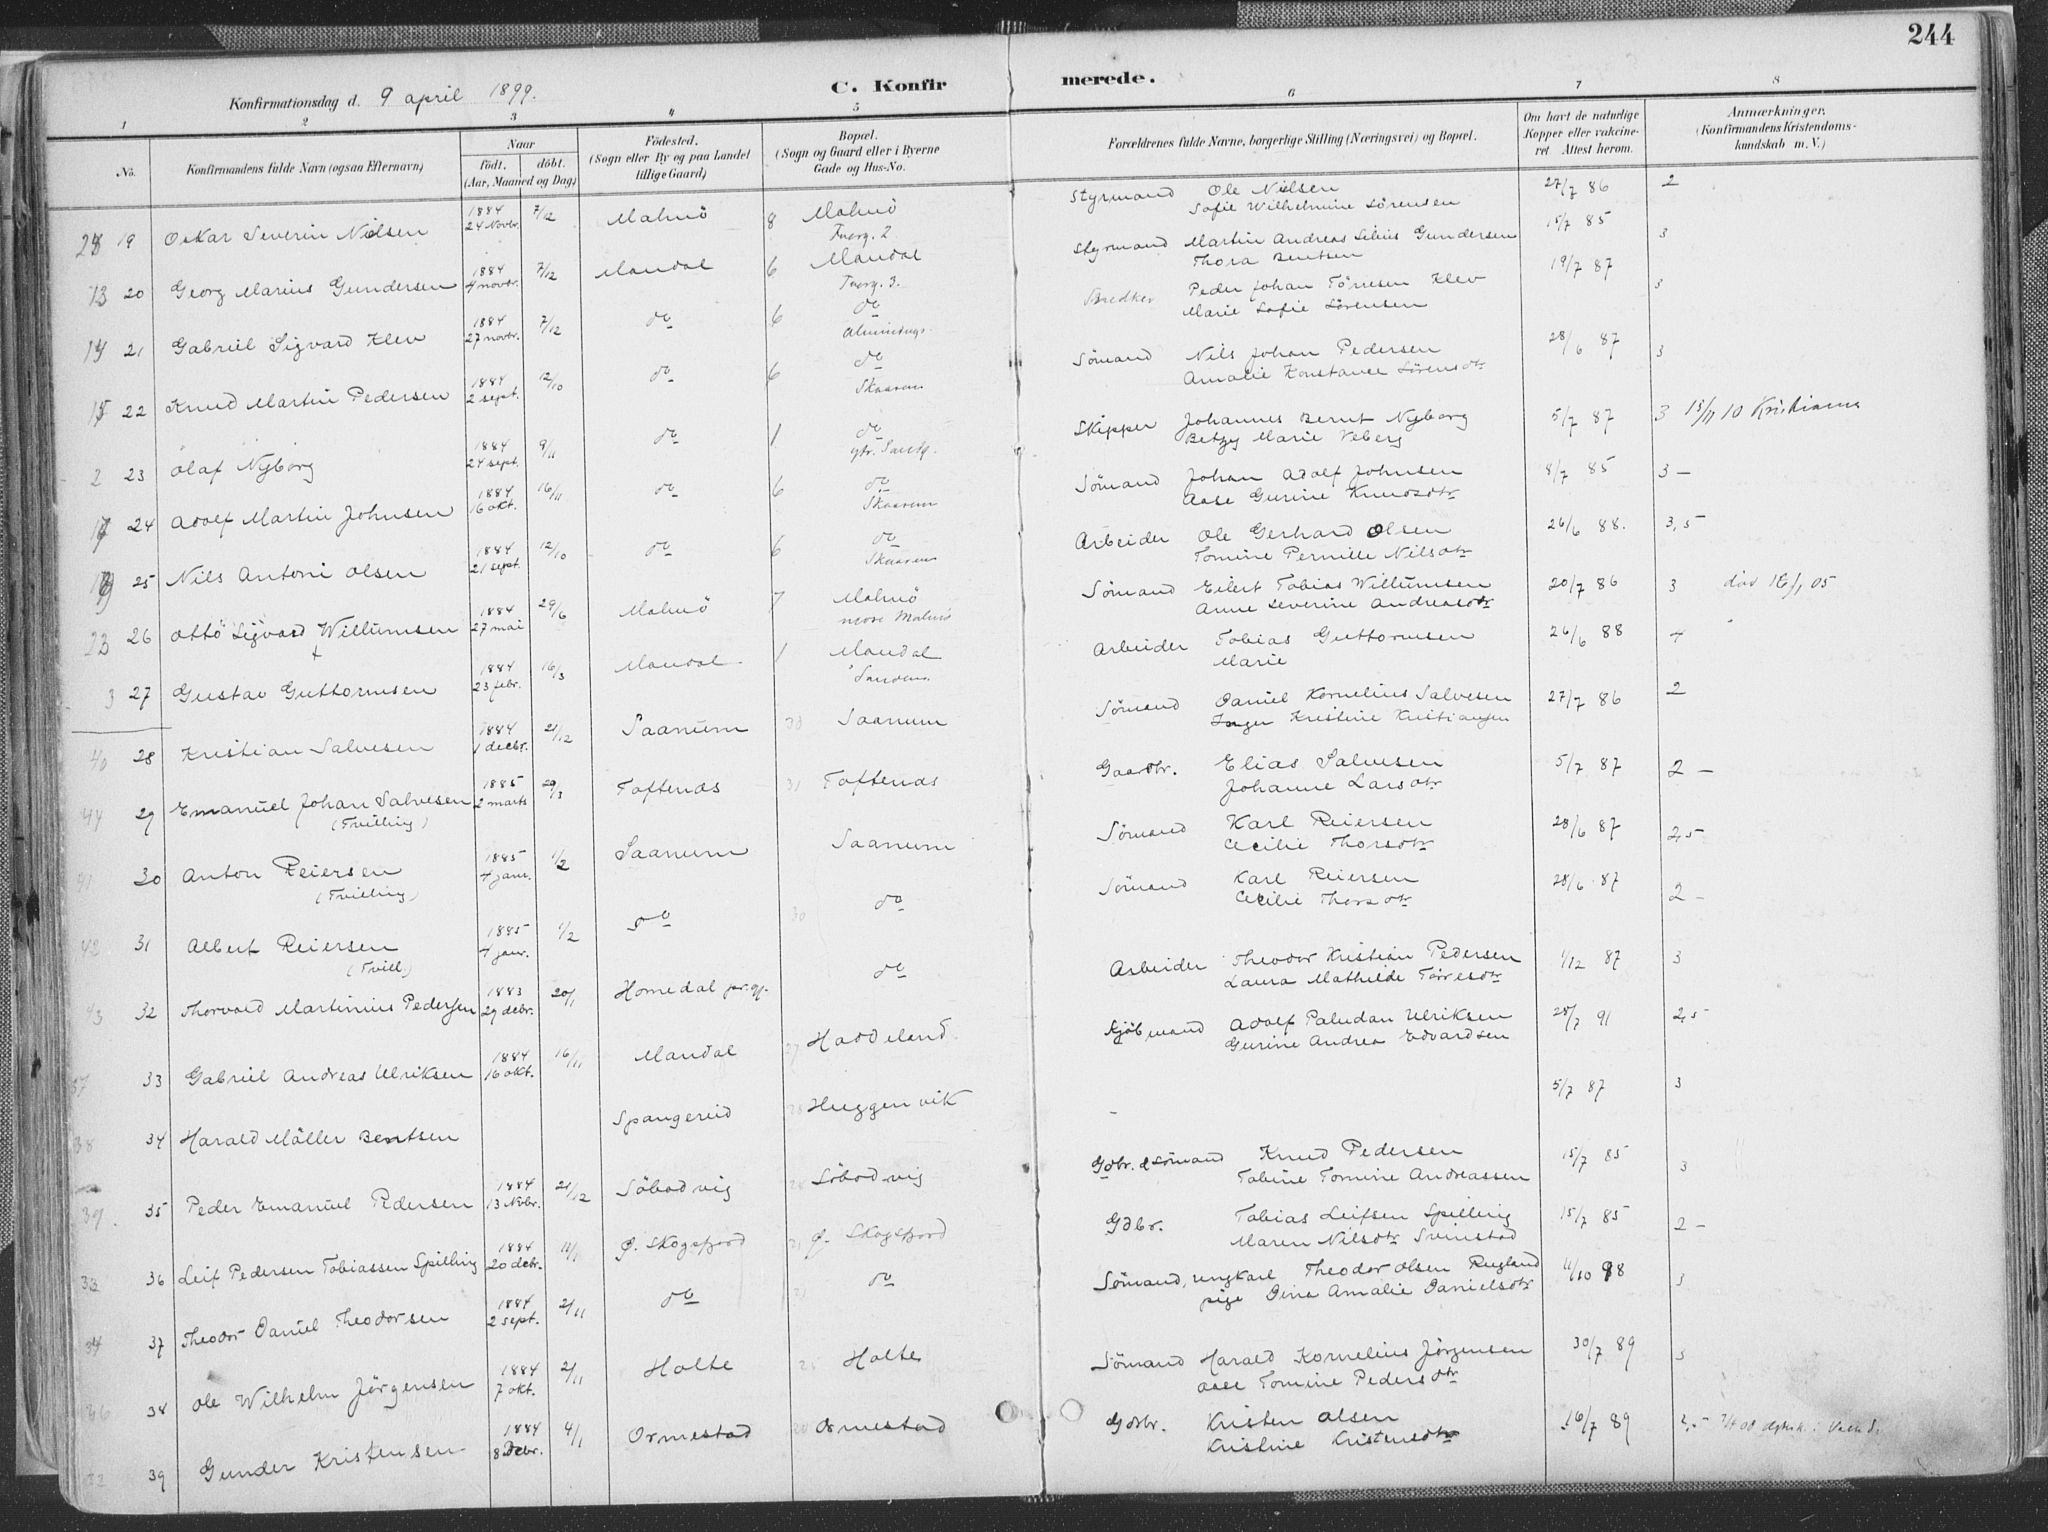 244
Konfirmationsdag d. 9 april 1899.
C. Konfirmerede.
1 2 3 4 5 6 7 8
No.
Konfirmandens fulde Navn (ogsaa Efternavn)
Naar
födt. döbt.
(Aar, Maaned og Dag)
Födested.
(Sogn eller By og paa Landet
tillige Gaard)
Bopæl.
(Sogn og Gaard eller i Byerne
Gade og Hus-No.
Forældrenes fulde Navne, borgerlige Stilling (Næringsvei) og Bopæl.
Om havt de naturlige
Kopper eller vakcine-
ret. Attest herom.
Anmærkninger.
(Konfirmandens Kristendoms-
kundskab m. V.)
19 Oskar Severin Nielsen 1884 24 Novbr. 7/12 Malmö 8 Malmö Styrmand Ole Nielsen 27/7 86 2
Sofie Wilhelmine Sörensen
13 20 Georg Marius Gundersen 1884 4 novbr. 7/12 Mandal 6 Mandal Styrmand Martin Andreas Gundersen 15/7 85 3
Thora Bentsen
21 Gabriel Sigvard Klev 1884 27 novbr. 7/12 do 6 do Peder Johan Törresen Klev 19/7 87 3
Marie Sofie Sörensen
15 22 Knud Martin Pedersen 1884 2 sept. 12/10 do 6 do Skaarem Sömand Nils Johan Pedersen 28/6 87 3
Amalie Konstance Sörensdtr
2 23 Olaf Nyborg 1884 24 sept. 9/11 do 1 do Skipper Johannes Bernt Nyborg 5/7 87 3 Kristiania
Betzy Marie Veberg
24 Adolf Martin Johnsen 1884 16 okt. 16/11 do 6 do Skaarem Sömand Johan Adolf Johnsen 8/7 85 3 -
Aase Gurine Knudsdtr
25 Nils Antoni Olsen 1884 21 sept. 12/10 do 6 do Skaarem Arbeider Ole Gerhard Olsen 26/6 88. 3,5
Tomine Pernille Nilsdtr
26 Otto Sigvard Willumsen 1884 27 mai 29/6 Malmö 7 Malmö Sömand Eilert Tobias Willumsen 20/7 86 3 död 16/1 05
Anne Severine Andreasdtr
3 27 Gustav Guttormsen 1884 23 febr. 16/3 Mandal 1 Mandal Arbeider Tobias Guttormsen 26/6 88 4
Marie
40 28 Kristian Salvesen 1884 1 decbr. 21/12 Saanum Saanum Sömand Daniel Kornelius Salvesen 27/7 86 2
Inger Kristine Kristiansen
44 29 Emanuel Johan Salvesen 1885 2 marts 29/3 Toftenes 31 Toftenes Gaardbr. Elias Salvesen 5/7 87 2 -
Johanne Larsdtr
(Tvilling)
41 30 Anton Reiersen 1885 4 janr. 1/2 Saanum Saanum Sömand Karl Reiersen 28/6 87 2,5
Cecilie Thorsdtr
(Tvilling)
42 31 Albert Reiersen 1885 4 janr. 1/2 do 30 do Sömand Karl Reiersen 28/6 87 2 -
Cecilie Thorsdtr
(Tvill)
43 32 Thorvald Martinius Pedersen 1883 29 debr. 20/1 Homedal do Arbeider Theodor Kristian Pedersen 1/12 87 3
Laura Mathilde Törresdtr
37 33 Gabriel Andreas Ulriksen 1884 16 okt. 16/11 Mandal 27 Haddeland Kjöbmand Adolf Paludan Ulriksen 28/7 91 2,5
Gurine Andrea Edvardsen
38 34 Harald Möller Bentsen Spangereid 28 Huggenvik 5/7 87 3
39. 35 Peder Emanuel Pedersen 1884 13 Nvbr. 21/12 Söbodvig Söbodvig Gdbr. & Sömand Knud Pedersen 15/7 85 3
Tobine Tomine Andreassen
36 Leif Pedersen Tobiassen Spilling 1884 20 debr. Ø. Skogsfjord Ø. Skogsfjord Gdbr. Tobias Leifsen Spilling 15/7 85 2 -
Maren Nilsdtr Svinstad
34 37 Theodor Daniel Theodorsen 1884 2 sept. 2/11 do do Sömand, ungkarl Theodor Olsen Rugland 11/10 98 3
pige Dina Amalie Danielsdtr
38 Ole Wilhelm Jörgensen 1884 7 okt. 2/11 Holte Holte Sömand Harald Kornelius Jörgensen 30/7 89 3
Aase Tomine Pedersdtr
39 Gunder Kristensen 1884 8 Debr. 4/1 Ormestad Ormestad Gdbr. Kristen Olsen 16/7 89
Kristine Kristensdtr